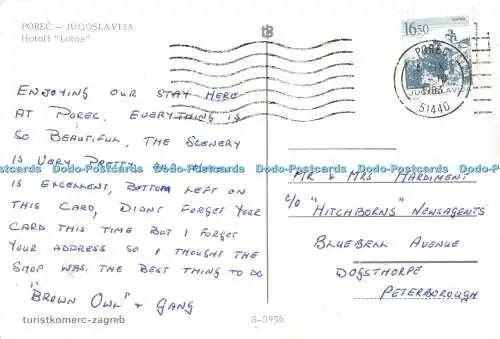 POREČ – JUGOSLAVIJA
Hoteli "Lotos"
ENJOYING OUR STAY HERE
AT POREC. EVERYTHING IS
SO BEAUTIFUL, THE SCENERY
IS VERY PRETTY OUR HOTEL
IS EXCELLENT, BOTTOM LEFT ON
THIS CARD, DIDNT FORGET YOUR
CARD THIS TIME BUT I FORGET
YOUR ADDRESS SO I THOUGHT THE
SHOP WAS THE BEST THING TO DO
"BROWN OWL" + GANG
turistkomerc-zagreb
S-5956
16.50
JUGOSLAVIJA
POREČ
1983
51440
MR & MRS MARDIMENT
C/o "HITCHBORNS" NEWSAGENTS
BLUEBELL AVENUE
DOGSTHORPE
PETERBOROUGH
Dodo-Postcards Dodo-Postcards Dodo-Postcards Dodo-Postcards Dodo-Postcards Dodo-Postcards